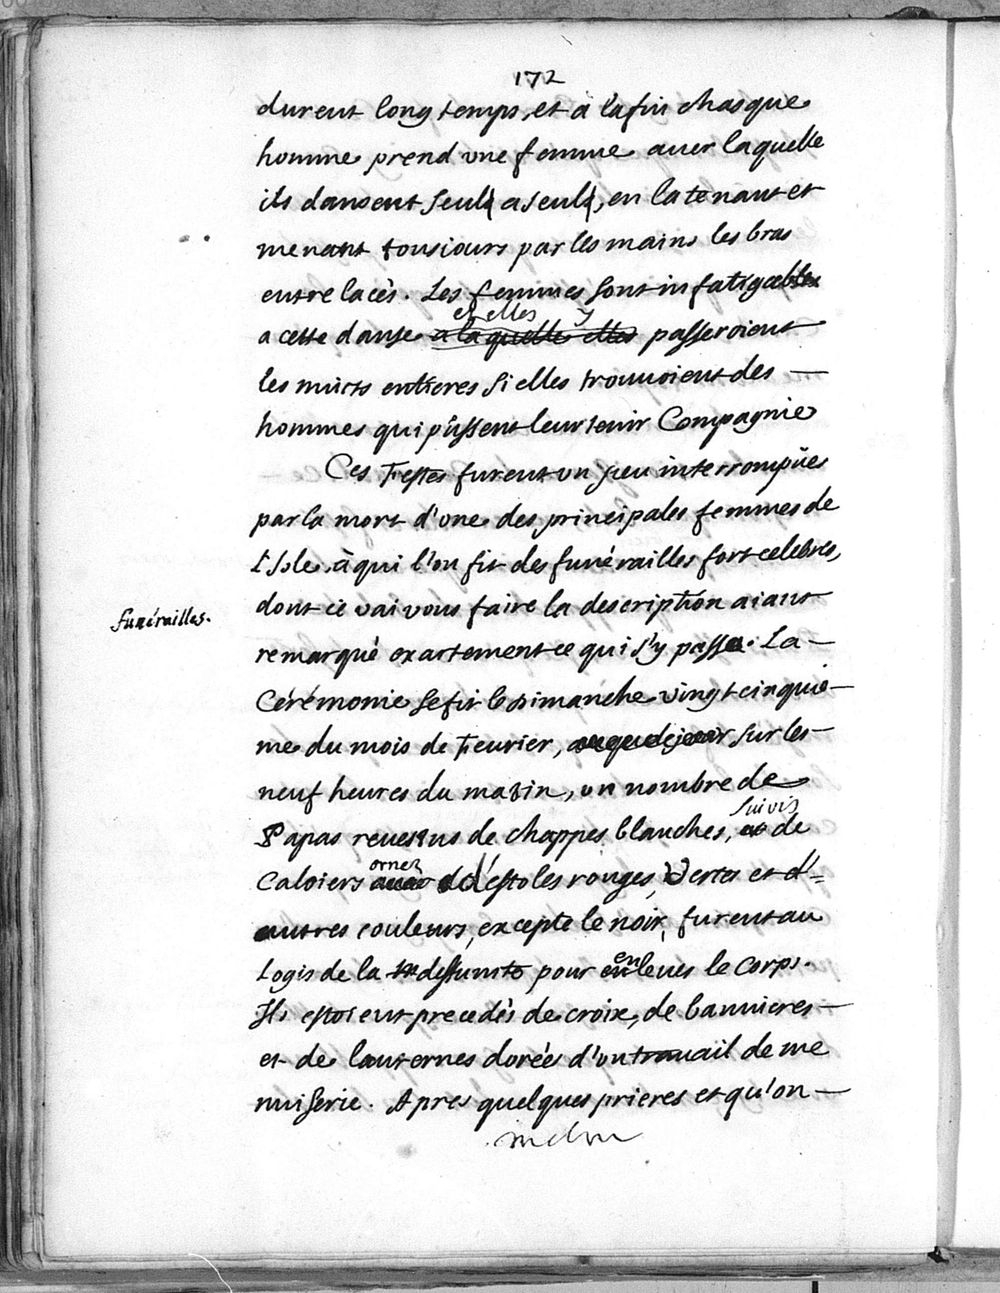 172
durent long temps, et à la fin chasque
homme prend vne femme auec laquelle
ils dansent seuls a seuls, en la tenant et
menant tousiours par les mains les bras
entrelacés. Les femmes sont infatigables
et elles y
a cette danse a laquelle elles passeroient
les nuits entieres si elles trouuoient des —
hommes qui pûssent leur tenir Compagnie
Ces Festes furent un peu interrompües
par la mort d'une des principales femmes de
l'Isle, à qui l'on fit des funérailles fort celebres,
dont ie vai vous faire la description aiant
funérailles.
remarqué exactement ce qui s'y passa. La —
Cérémonie se fit le dimanche vingt cinquié—
me du mois de Feurier, sur les —
neuf heures du matin, un nombre de
suivis
Papas reuestus de chappes blanches, et de
ornez
Caloiers auec d'estoles rouges, Vertes et d'=
autres couleurs, excepte le noir, furent au
Logis de la deffunte pour
en
leuer le Corps.
Ils estoient precedés de croix, de bannieres —
et de lanternes dorées d'un trauail de me
nuiserie. Apres quelques prieres et qu'on —